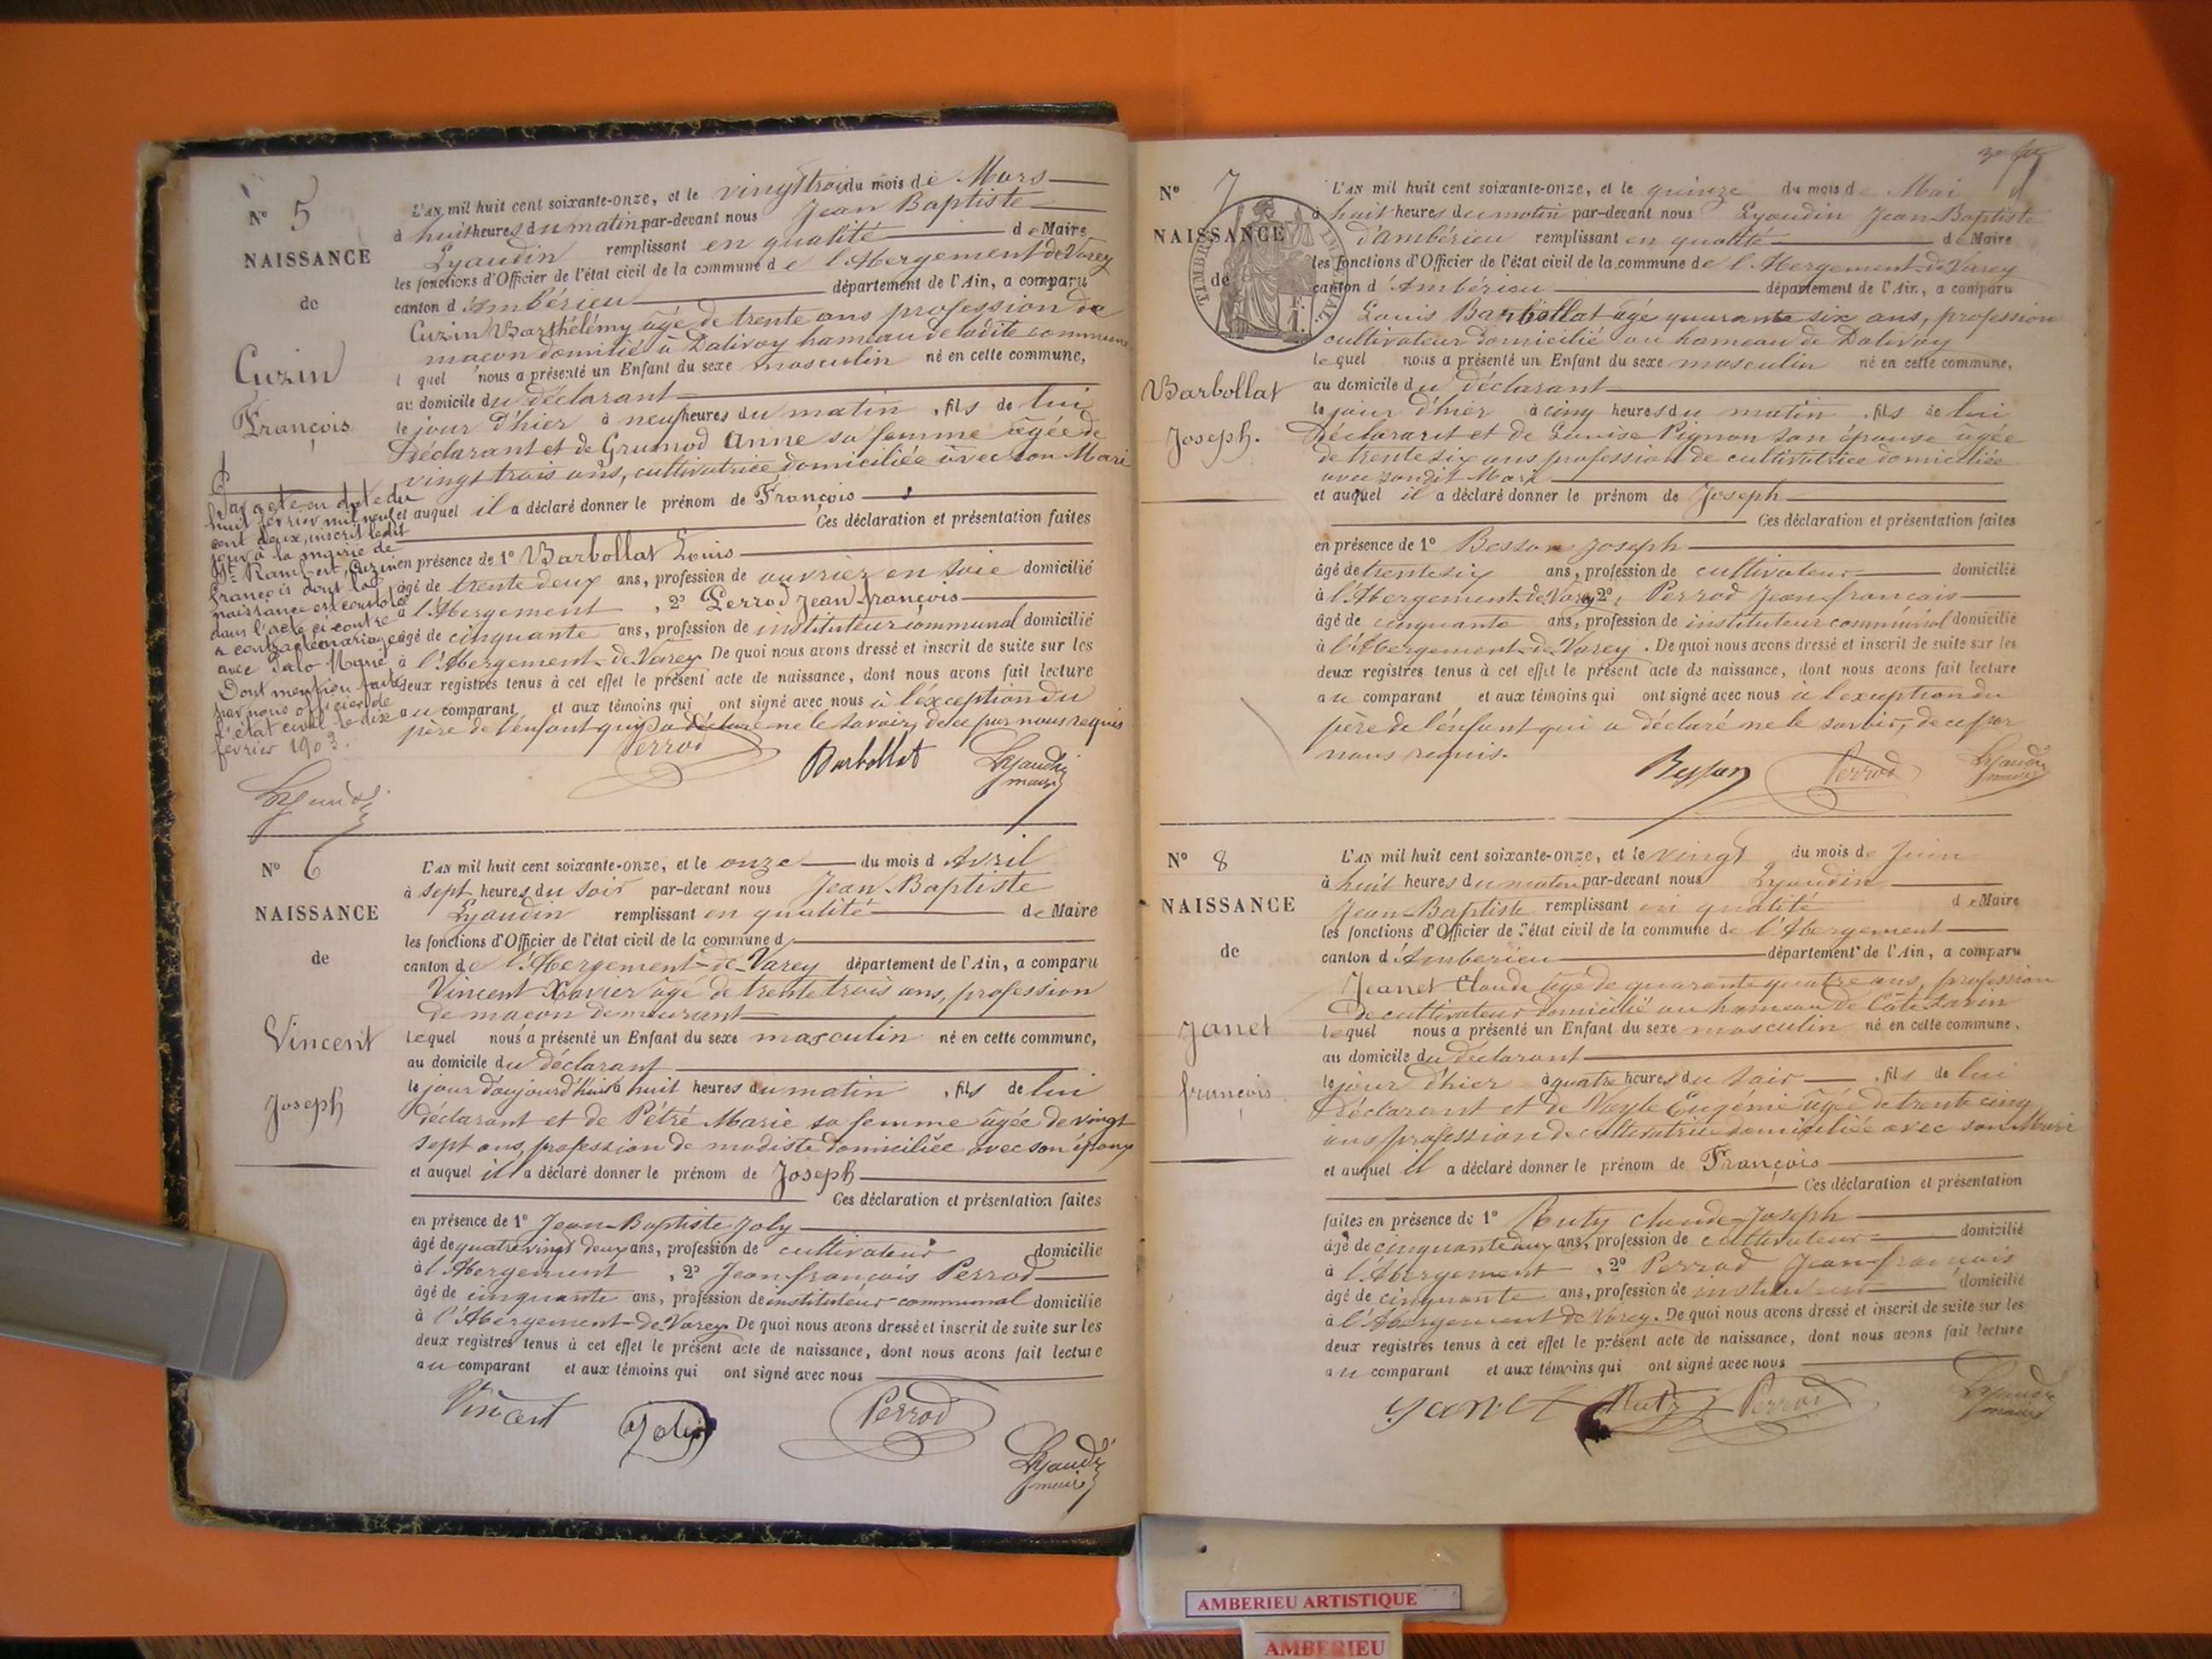 N° 5
NAISSANCE
de
Cuzin
François
L'AN mil huit cent soixante-onze, et le vingt trois du mois de Mars
à huit heures du matin par-devant nous Jean Baptiste
Lyaudin remplissant en qualité de Maire
les fonctions d'Officier de l'état civil de la commune de l'Abergement de Varey
canton d'Ambérieu département de l'Ain, a comparu
Cuzin Barthélémy âgé de trente ans profession de
maçon domicilié à Dalivoy hameau de ladite commune
lequel nous a présenté un Enfant du sexe masculin né en cette commune,
au domicile du déclarant
le jour d'hier à neuf heures du matin, fils de lui
déclarant et de Grumod Anne sa femme âgée de
vingt trois ans, cultivatrice domiciliée avec son Mari
et auquel il a déclaré donner le prénom de François
Ces déclaration et présentation faites
en présence de 1° Barbollat Louis
âgé de trente deux ans, profession de ouvrier en soie domicilié
à l'Abergement, 2° Perrod Jean-françois
âgé de cinquante ans, profession de instituteur communal domicilié
à l'Abergement-de-Varey. De quoi nous avons dressé et inscrit de suite sur les
deux registres tenus à cet effet le présent acte de naissance, dont nous avons fait lecture
au comparant et aux témoins qui ont signé avec nous à l'exception du
père de l'enfant qui a déclaré ne le savoir, de ce par nous requis
Perrod Barbollat Lyaudin
maire
Par acte en date du
huit février mil neuf
cent deux, inscrit ledit
jour à la mairie de
St-Rambert, Cuzin
François dont la
naissance est constatée
dans l'acte ci-contre
a contracté mariage
avec
Dont mention faite
par nous officier de
l'état civil le dix
février 1903.
Lyaudin
N° 6
NAISSANCE
de
Vincent
Joseph
L'AN mil huit cent soixante-onze, et le onze du mois d'Avril
à sept heures du soir par-devant nous Jean-Baptiste
Lyaudin remplissant en qualité de Maire
les fonctions d'Officier de l'état civil de la commune d
canton de l'Abergement-de-Varey département de l'Ain, a comparu
Vincent Xavier âgé de trente trois ans, profession
de maçon demeurant
lequel nous a présenté un Enfant du sexe masculin né en cette commune,
au domicile du déclarant
le jour d'aujourd'hui à huit heures du matin, fils de lui
déclarant et de Pétré Marie sa femme âgée de vingt
sept ans, profession de modiste domiciliée avec son époux
et auquel il a déclaré donner le prénom de Joseph
Ces déclaration et présentation faites
en présence de 1° Jean-Baptiste Joly
âgé de quatre vingt deux ans, profession de cultivateur domicilié
à l'Abergement, 2° Jean-françois Perrod
âgé de cinquante ans, profession de instituteur communal domicilié
à l'Abergement-de-Varey. De quoi nous avons dressé et inscrit de suite sur les
deux registres tenus à cet effet le présent acte de naissance, dont nous avons fait lecture
au comparant et aux témoins qui ont signé avec nous
Vincent Joly Perrod
Lyaudin
maire
N° 7
NAISSANCE
de
Barbollat
Joseph.
TIMBRE IMPÉRIAL
L'AN mil huit cent soixante-onze, et le quinze du mois de Mai
à huit heures du matin par-devant nous Lyaudin Jean-Baptiste
d'ambérieu remplissant en qualité de Maire
les fonctions d'Officier de l'état civil de la commune de l'Abergement-de-Varey
canton d'Ambérieu département de l'Ain, a comparu
Louis Barbollat âgé quarante six ans, profession
cultivateur domicilié au hameau de Dalivoy
lequel nous a présenté un Enfant du sexe masculin né en cette commune,
au domicile du déclarant
le jour d'hier à cinq heures du matin, fils de lui
Déclarant et de Louise Pignon son épouse âgée
de trente six ans profession de cultivatrice domiciliée
avec son dit Mari
et auquel il a déclaré donner le prénom de Joseph
Ces déclaration et présentation faites
en présence de 1° Besson Joseph
âgé de trente six ans, profession de cultivateur domicilié
à l'Abergement-de-Varey 2°, Perrod Jean-françois
âgé de cinquante ans, profession de instituteur communal domicilié
à l'Abergement-de-Varey. De quoi nous avons dressé et inscrit de suite sur les
deux registres tenus à cet effet le présent acte de naissance, dont nous avons fait lecture
au comparant et aux témoins qui ont signé avec nous à l'exception du
père de l'enfant qui a déclaré ne le savoir, de ce par
nous requis.
Besson Perrod Lyaudin
maire
N° 8
NAISSANCE
de
Janet
françois
L'AN mil huit cent soixante-onze, et le vingt du mois de Juin
à huit heures du matin par-devant nous Lyaudin
Jean-Baptiste remplissant en qualité de Maire
les fonctions d'Officier de l'état civil de la commune de l'Abergement
canton d'Ambérieu département de l'Ain, a comparu
Jeanet Claude âgé de quarante quatre ans, profession
de cultivateur domicilié au hameau de Côte Savin
lequel nous a présenté un Enfant du sexe masculin né en cette commune,
au domicile du déclarant
le jour d'hier à quatre heures du soir, fils de lui
Déclarant et de Vayle Eugénie âgée de trente cinq
ans profession de cultivatrice domiciliée avec son Mari
et auquel il a déclaré donner le prénom de François
Ces déclaration et présentation
faites en présence de 1° Ruty Claude-Joseph
âgé de cinquante deux ans, profession de cultivateur domicilié
à l'Abergement, 2° Perrod Jean-françois
âgé de cinquante ans, profession de instituteur domicilié
à l'Abergement de Varey. De quoi nous avons dressé et inscrit de suite sur les
deux registres tenus à cet effet le présent acte de naissance, dont nous avons fait lecture
au comparant et aux témoins qui ont signé avec nous
Janet Ruty Perrod Lyaudin
maire
AMBERIEU ARTISTIQUE
AMBERIEU